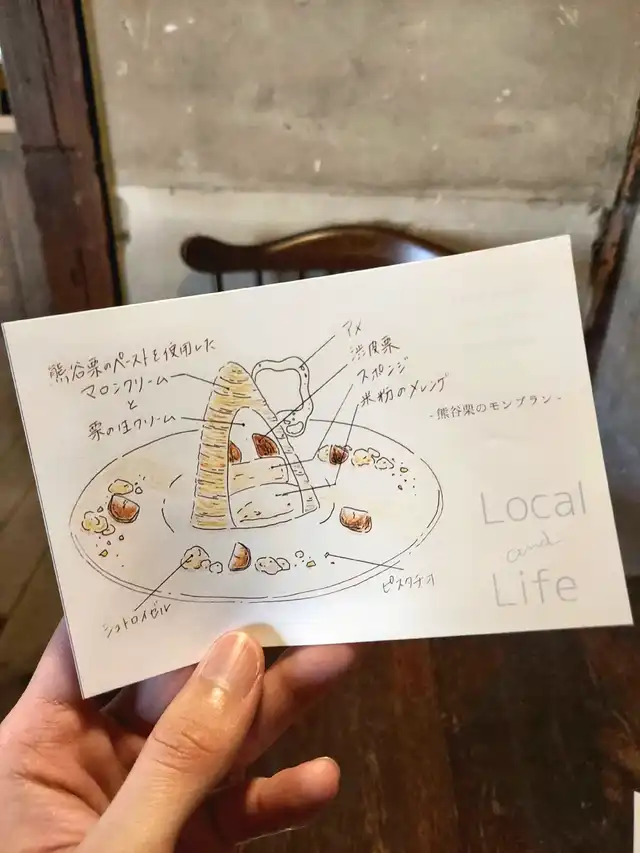 熊谷栗のペーストを使用した
マロンクリーム
と
栗の生クリーム
アメ
渋皮栗
スポンジ
米粉のメレンゲ
シュトロイゼル
ピスタチオ
-熊谷栗のモンブラン-
Local
and
Life